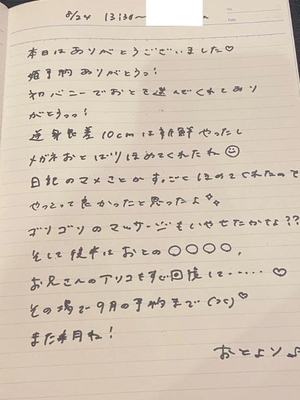 8/24 13:30〜
本日はありがとうございました♡
姫予約ありがとうっ!
初バニーでおとを選んでくれてあり
がとうっっ!
逆身長差10cmは新鮮やったし
メガネおとばりほめてくれたね☺
日記のマメさとかすっごくほめてくれたので
やっとって良かったと思ったよ✧
ゴリゴリのマッサージもいやせたかなよ??
そして後半はおとの〇〇〇〇。
お兄さんのアソコもすぐ回復して……♡
その場で9月の予約まで(つc)♡
また来月ね!
おとより♪